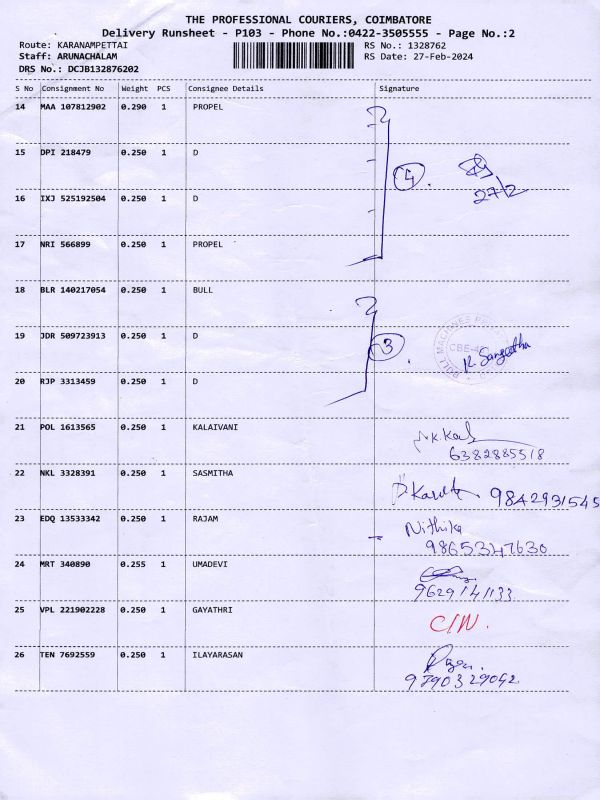 THE PROFESSIONAL COURIERS, COIMBATORE
Delivery Runsheet - P103 - Phone No.:0422-3505555 - Page No.:2
Route: KARANAMPETTAI RS No.: 1328762
Staff: ARUNACHALAM RS Date: 27-Feb-2024
DRS No.: DCJB132876202
S No Consignment No Weight PCS Consignee Details Signature
14 MAA 107812902 0.290 1 PROPEL
15 DPI 218479 0.250 1 D
4
27/2
16 IXJ 525192504 0.250 1 D
17 NRI 566899 0.250 1 PROPEL
18 BLR 140217054 0.250 1 BULL
19 JDR 509723913 0.250 1 D
3
BULL MACHINES
CBE
K. Sangeetha
20 RJP 3313459 0.250 1 D
21 POL 1613565 0.250 1 KALAIVANI
6382885518
22 NKL 3328391 0.250 1 SASMITHA
9842931545
23 EDQ 13533342 0.250 1 RAJAM Nithika
9865347630
24 MRT 340890 0.255 1 UMADEVI
9629141133
25 VPL 221902228 0.250 1 GAYATHRI C/N.
26 TEN 7692559 0.250 1 ILAYARASAN
9790329042